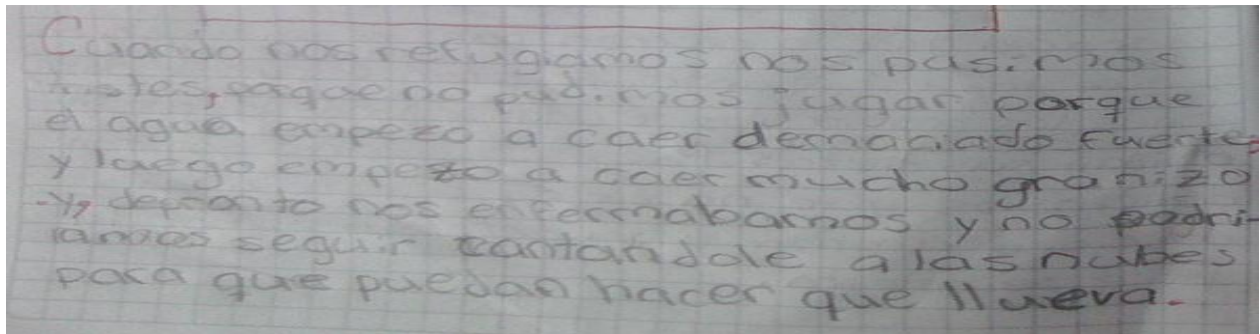 Cuando nos refugiamos nos pusimos
tristes, porque no pudimos jugar porque
el agua empezo a caer demaciado fuerte
y luego empezo a caer mucho granizo
y, depronto nos enfermabamos y no podri
iamos seguir cantandole a las nubes
para que puedan hacer que llueva.